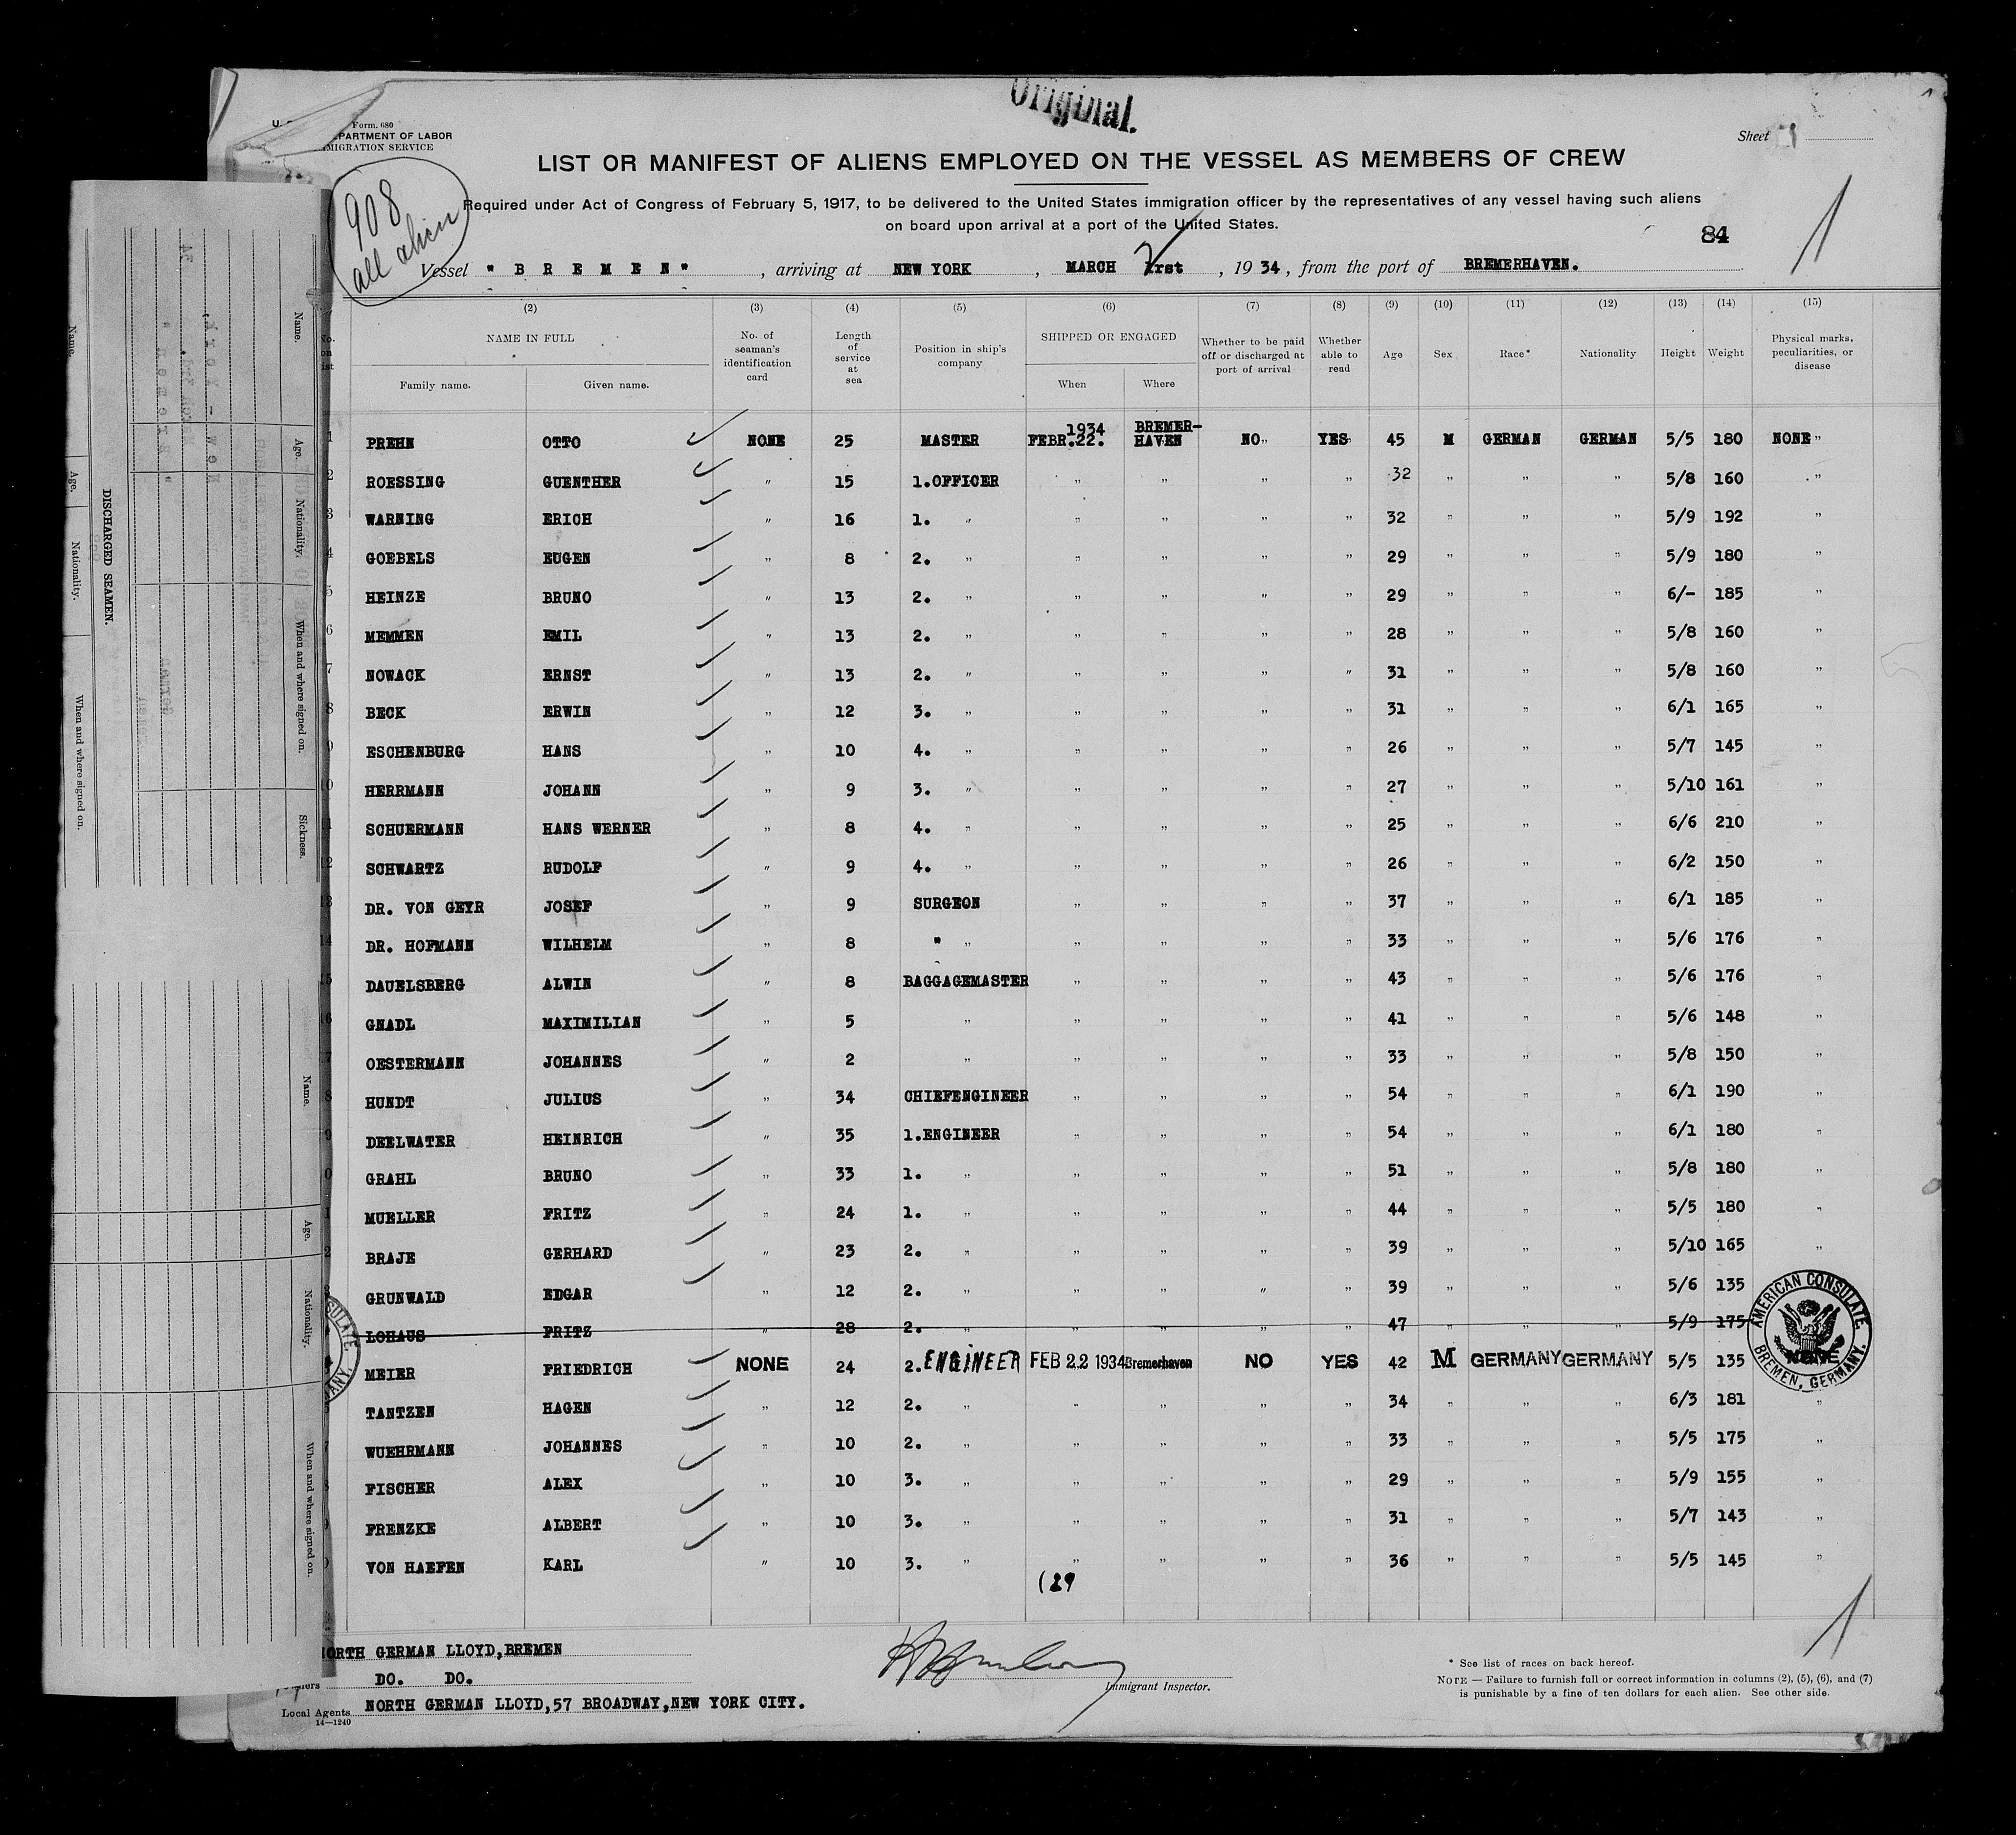 Original.
Form. 680
PARTMENT OF LABOR
MIGRATION SERVICE
Sheet 1
LIST OR MANIFEST OF ALIENS EMPLOYED ON THE VESSEL AS MEMBERS OF CREW
908
all alien
Required under Act of Congress of February 5, 1917, to be delivered to the United States immigration officer by the representatives of any vessel having such aliens
on board upon arrival at a port of the United States.
84
1
Vessel " B R E M E N " , arriving at NEW YORK , MARCH 1rst , 19 34 , from the port of BREMERHAVEN.
(2) (3) (4) (5) (6) (7) (8) (9) (10) (11) (12) (13) (14) (15)
NAME IN FULL
Family name. Given name.
No. of seaman's identification card
Length of service at sea
Position in ship's company
SHIPPED OR ENGAGED
When Where
Whether to be paid off or discharged at port of arrival
Whether able to read
Age Sex Race* Nationality Height Weight
Physical marks, peculiarities, or disease
PREHN OTTO NONE 25 MASTER 1934 FEBR.22. BREMER-HAVEN NO" YES" 45 M GERMAN GERMAN 5/5 180 NONE "
ROESSING GUENTHER " 15 1.OFFICER " " " " 32 " " " 5/8 160 "
WARNING ERICH " 16 1. " " " " " 32 " " " 5/9 192 "
GOEBELS EUGEN " 8 2. " " " " " 29 " " " 5/9 180 "
HEINZE BRUNO " 13 2. " " " " " 29 " " " 6/- 185 "
MEMMEN EMIL " 13 2. " " " " " 28 " " " 5/8 160 "
NOWACK ERNST " 13 2. " " " " " 31 " " " 5/8 160 "
BECK ERWIN " 12 3. " " " " " 31 " " " 6/1 165 "
ESCHENBURG HANS " 10 4. " " " " " 26 " " " 5/7 145 "
HERRMANN JOHANN " 9 3. " " " " " 27 " " " 5/10 161 "
SCHUERMANN HANS WERNER " 8 4. " " " " " 25 " " " 6/6 210 "
SCHWARTZ RUDOLF " 9 4. " " " " " 26 " " " 6/2 150 "
DR. VON GEYR JOSEF " 9 SURGEON " " " " 37 " " " 6/1 185 "
DR. HOFMANN WILHELM " 8 " " " " " " 33 " " " 5/6 176 "
DAUELSBERG ALWIN " 8 BAGGAGEMASTER " " " " 43 " " " 5/6 176 "
GNADL MAXIMILIAN " 5 " " " " " 41 " " " 5/6 148 "
OESTERMANN JOHANNES " 2 " " " " " 33 " " " 5/8 150 "
HUNDT JULIUS " 34 CHIEFENGINEER " " " " 54 " " " 6/1 190 "
DEELWATER HEINRICH " 35 1.ENGINEER " " " " 54 " " " 6/1 180 "
GRAHL BRUNO " 33 1. " " " " " 51 " " " 5/8 180 "
MUELLER FRITZ " 24 1. " " " " " 44 " " " 5/5 180 "
BRAJE GERHARD " 23 2. " " " " " 39 " " " 5/10 165 "
GRUNWALD EDGAR " 12 2. " " " " " 39 " " " 5/6 135
LOHAUS FRITZ " 28 2. " " " " " 47 " " " 5/9 175
MEIER FRIEDRICH NONE 24 2. ENGINEER FEB 22 1934 Bremerhaven NO YES 42 M GERMANY GERMANY 5/5 135 NONE
TANTZEN HAGEN " 12 2. " " " " " 34 " " " 6/3 181 "
WUEHRMANN JOHANNES " 10 2. " " " " " 33 " " " 5/5 175 "
FISCHER ALEX " 10 3. " " " " " 29 " " " 5/9 155 "
FRENZKE ALBERT " 10 3. " " " " " 31 " " " 5/7 143 "
VON HAEFEN KARL " 10 3. " " " " " 36 " " " 5/5 145 "
(29
AMERICAN CONSULATE
BREMEN, GERMANY.
1
ORTH GERMAN LLOYD,BREMEN
DO. DO.
Local Agents NORTH GERMAN LLOYD,57 BROADWAY,NEW YORK CITY.
14—1240
Immigrant Inspector.
* See list of races on back hereof.
NOTE — Failure to furnish full or correct information in columns (2), (5), (6), and (7)
is punishable by a fine of ten dollars for each alien. See other side.
DISCHARGED SEAMEN.
Name. Age. Nationality. When and where signed on.
Name. Age. Nationality. When and where signed on. Sickness.
Name. Age. Nationality. When and where signed on.